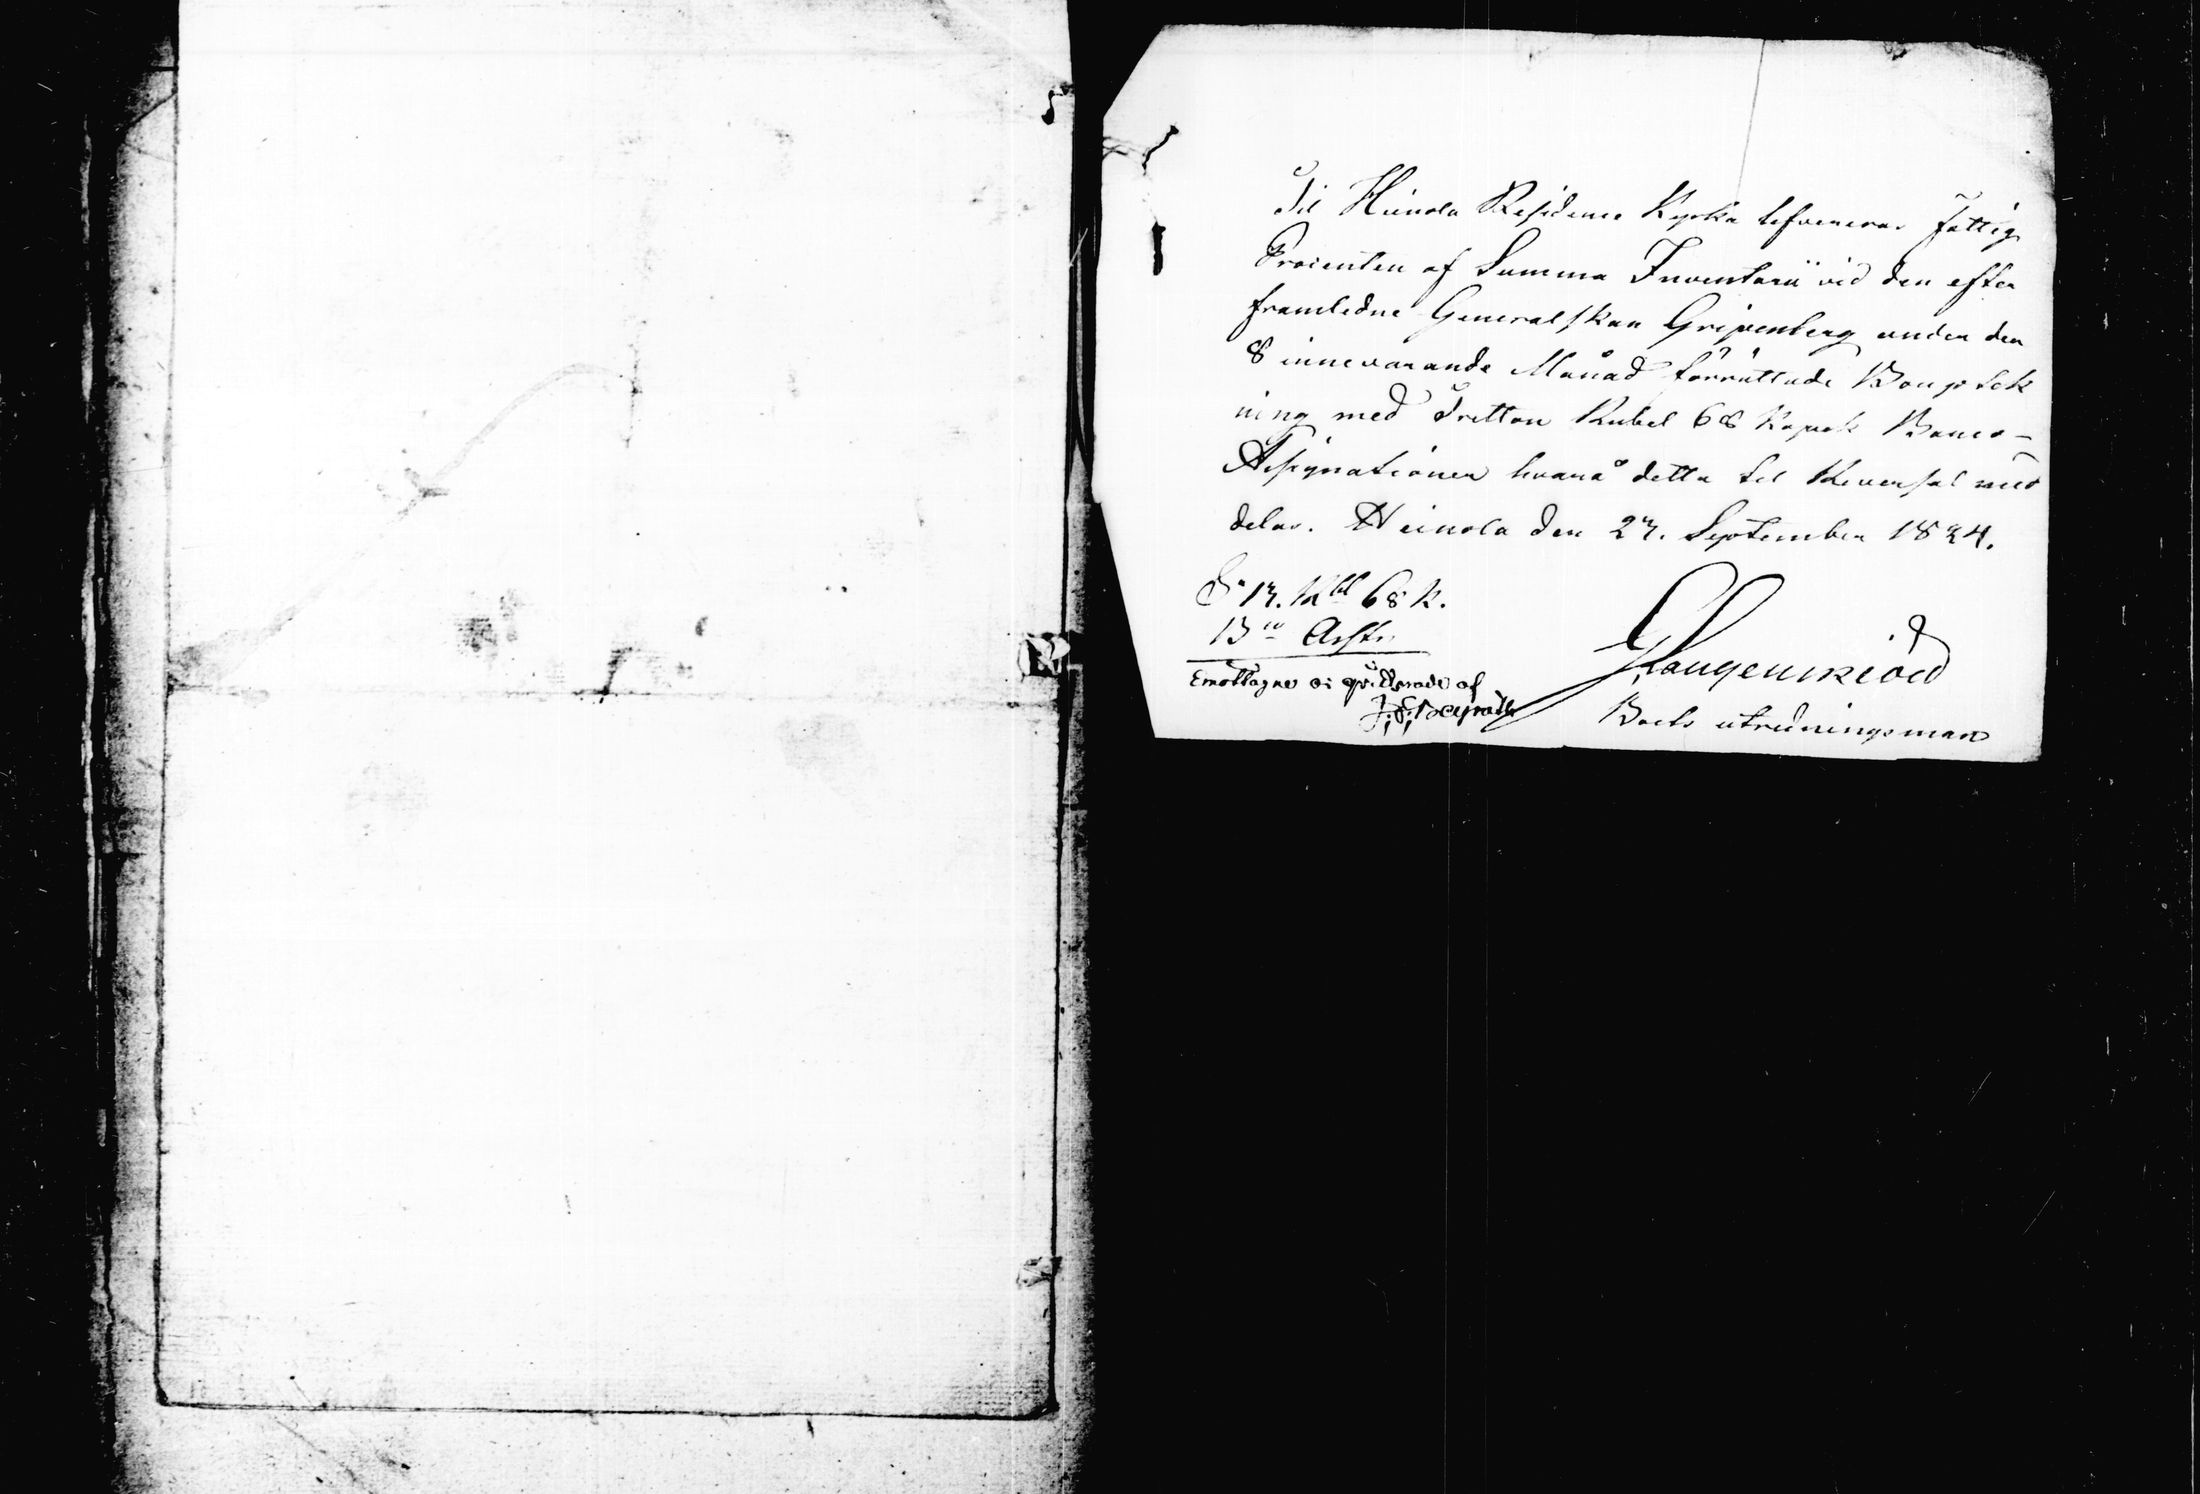 Til Heinola Residence Kyrka lefvereras Fattig
Procenten af Summa Inventarii vid den efter
framledne Generalskan Gripenberg under den
8 innevarande Månad förrättade Bouptek
ning med Tretton Rubel 68 Kopek Banco-
Assignationer hvarå detta til Reversal med
delas. Heinola den 23. September 1834.
Sr 13. Rbl 68 K.
Bco Assr
Emottagne og qvitterade af
Langenskiöld
Boets utredningsman